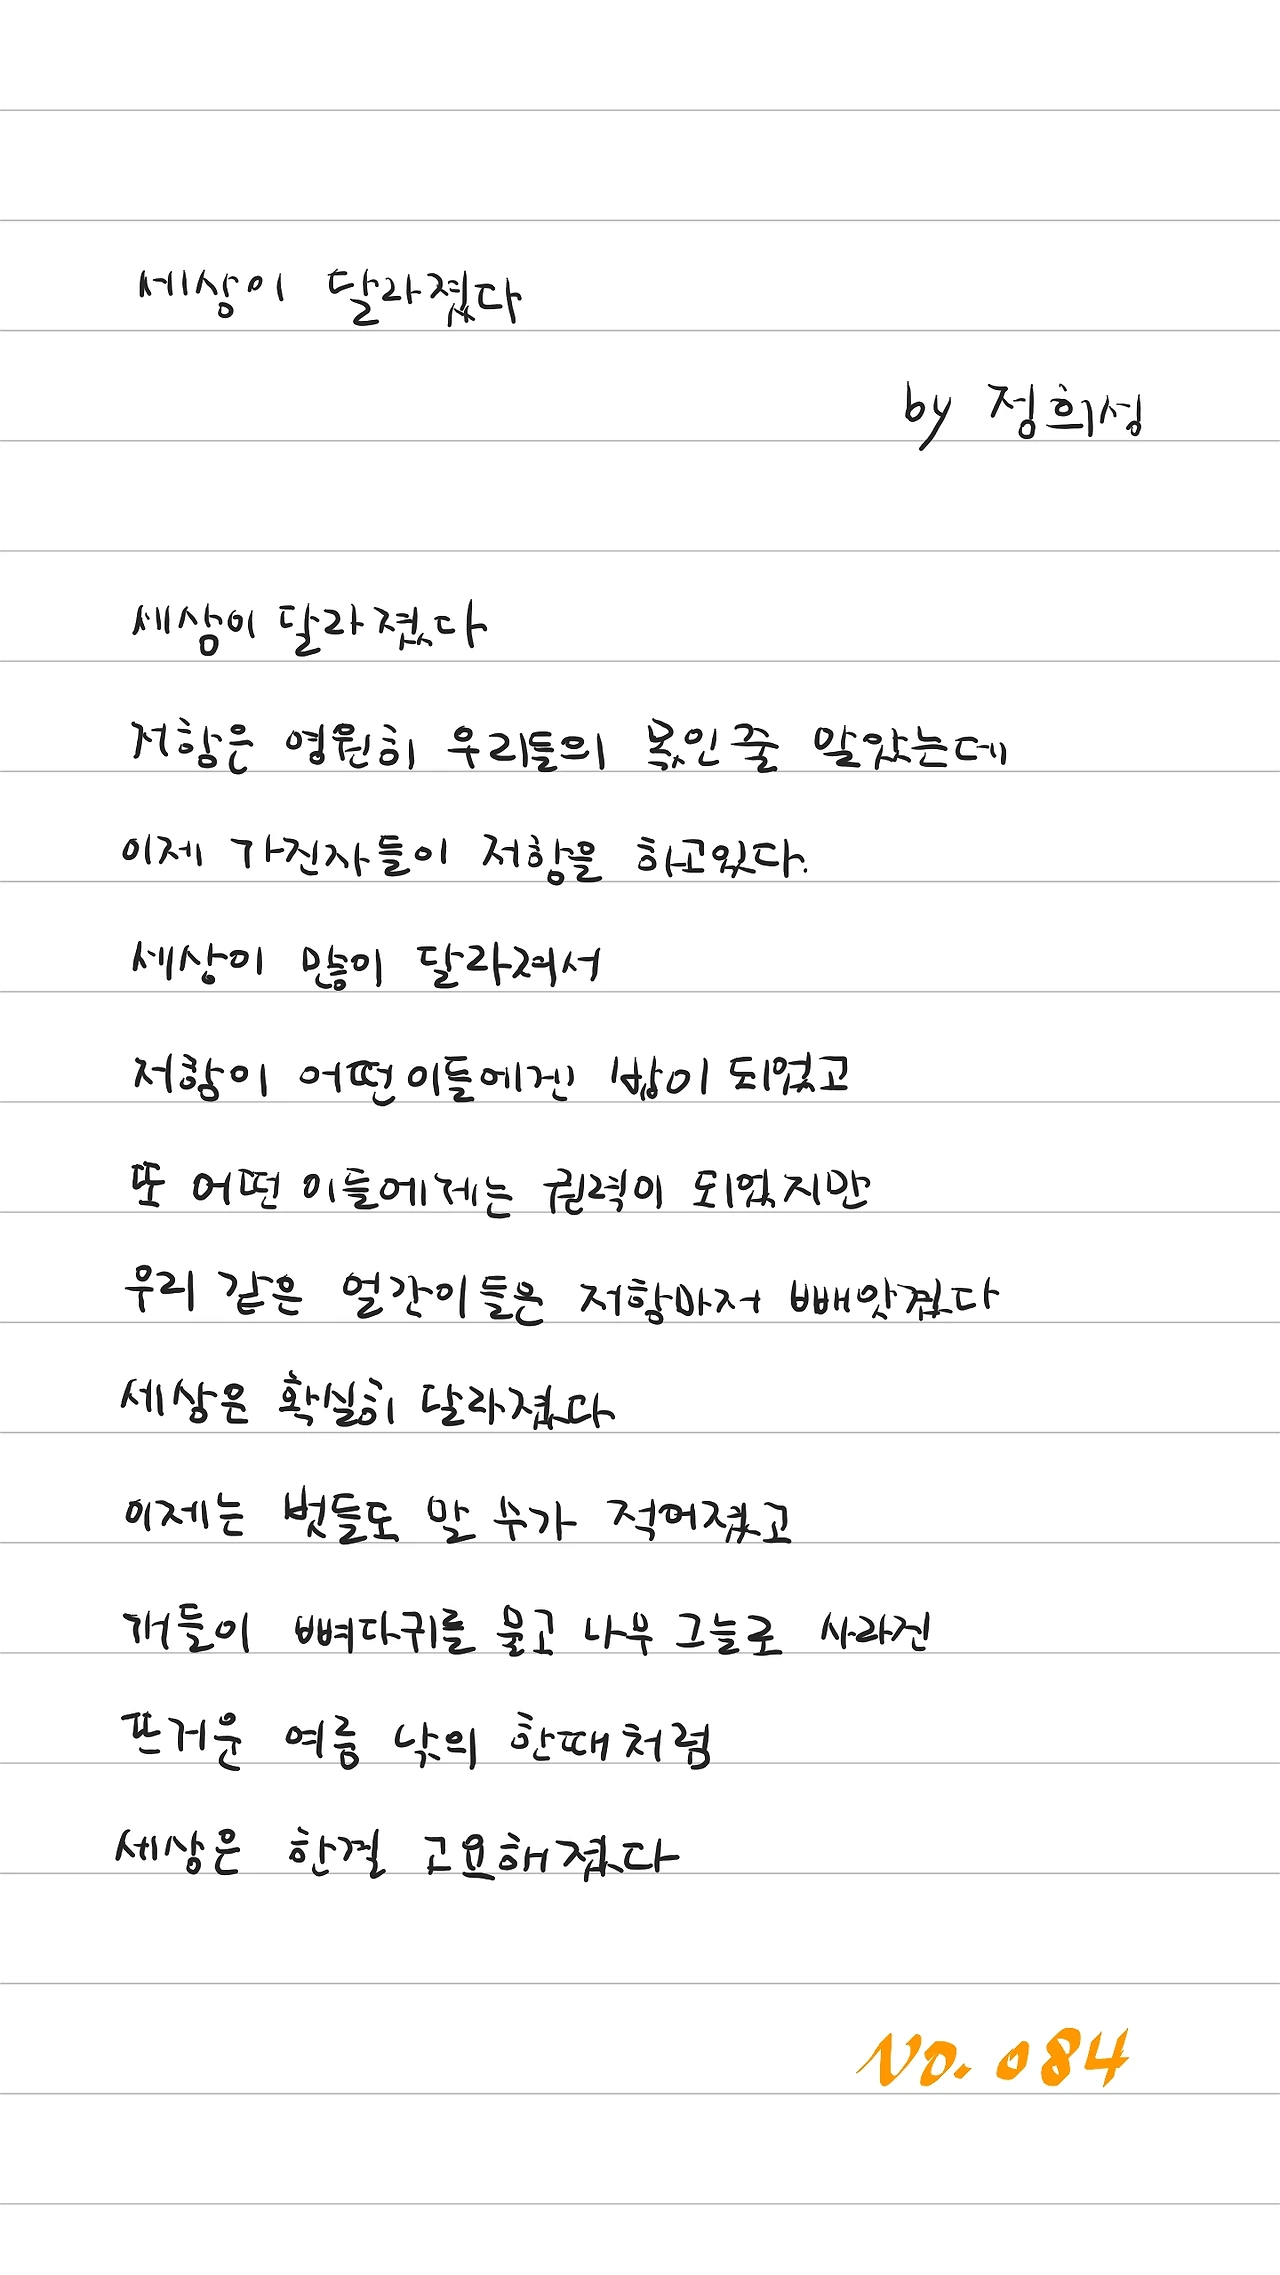 세상이 달라졌다
by 정희성
세상이 달라졌다
저항은 영원히 우리들의 몫인줄 말았는데
이제 가진자들이 저항을 하고있다.
세상이 많이 달라져서
저항이 어떤이들에겐 밥이 되었고
또 어떤 이들에게는 권력이 되었지만
우리 같은 얼간이들은 저항마저 빼앗겼다
세상은 확실히 달라졌다
이제는 벗들도 말 수가 적어졌고
개들이 뼈다귀를 물고 나무 그늘로 사라진
뜨거운 여름 낮의 한때처럼
세상은 한결 고요해졌다
NO. 084